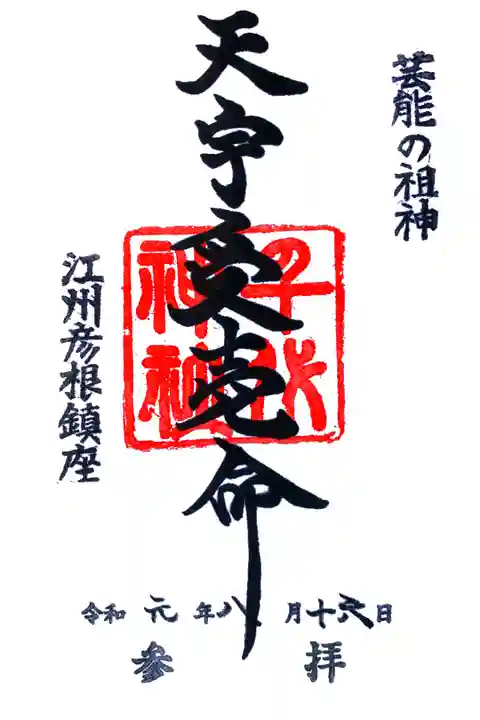 芸能の祖神
天宇受売命
千代
神社
江州彦根鎮座
令和元年八月十六日
参拝